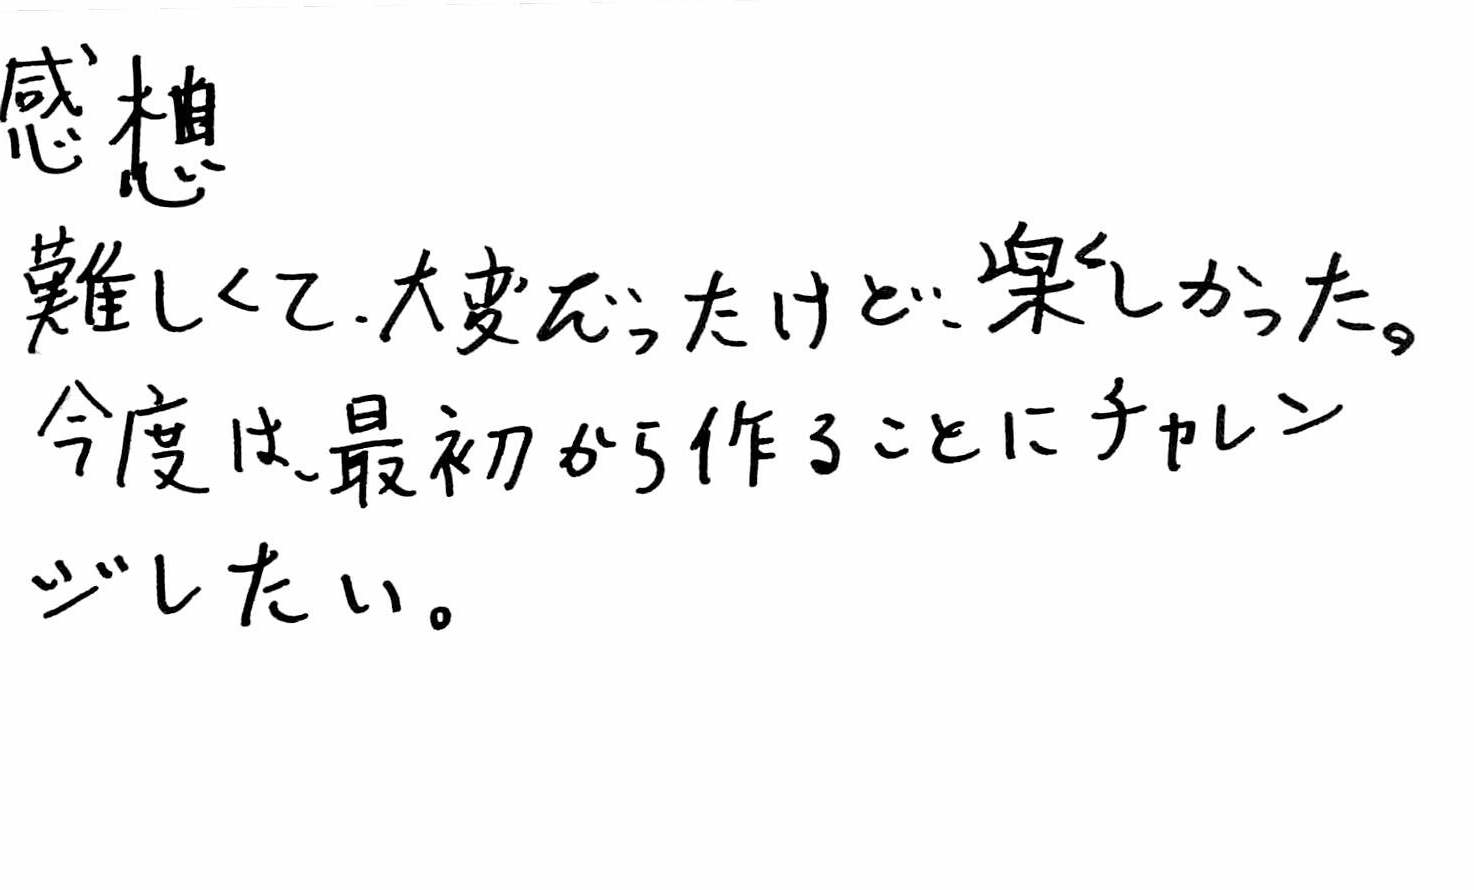 感想
難しくて、大変だったけど、楽しかった。
今度は、最初から作ることにチャレン
ジしたい。